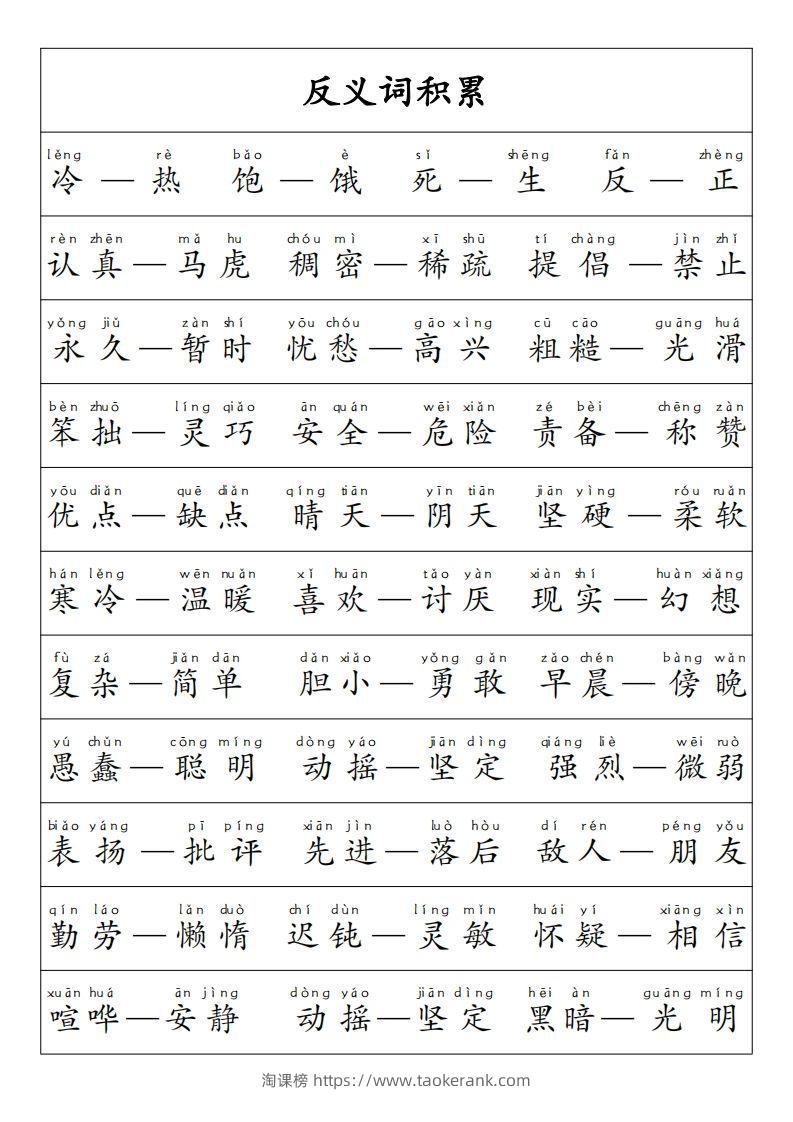 反义词积累
lěng rè bǎo è sǐ shēng fǎn zhèng
冷 — 热 饱 — 饿 死 — 生 反 — 正
rèn zhēn mǎ hu chóu mì xī shū tí chàng jìn zhǐ
认真 — 马虎 稠密 — 稀疏 提倡 — 禁止
yǒng jiǔ zàn shí yōu chóu gāo xìng cū cāo guāng huá
永久 — 暂时 忧愁 — 高兴 粗糙 — 光滑
bèn zhuō líng qiǎo ān quán wēi xiǎn zé bèi chēng zàn
笨拙 — 灵巧 安全 — 危险 责备 — 称赞
yōu diǎn quē diǎn qíng tiān yīn tiān jiān yìng róu ruǎn
优点 — 缺点 晴天 — 阴天 坚硬 — 柔软
hán lěng wēn nuǎn xǐ huān tǎo yàn xiàn shí huàn xiǎng
寒冷 — 温暖 喜欢 — 讨厌 现实 — 幻想
fù zá jiǎn dān dǎn xiǎo yǒng gǎn zǎo chén bàng wǎn
复杂 — 简单 胆小 — 勇敢 早晨 — 傍晚
yú chǔn cōng míng dòng yáo jiān dìng qiáng liè wēi ruò
愚蠢 — 聪明 动摇 — 坚定 强烈 — 微弱
biǎo yáng pī píng xiān jìn luò hòu dí rén péng yǒu
表扬 — 批评 先进 — 落后 敌人 — 朋友
qín láo lǎn duò chí dùn líng mǐn huái yí xiāng xìn
勤劳 — 懒惰 迟钝 — 灵敏 怀疑 — 相信
xuān huá ān jìng dòng yáo jiān dìng hēi àn guāng míng
喧哗 — 安静 动摇 — 坚定 黑暗 — 光明
淘课榜 https://www.taokerank.com